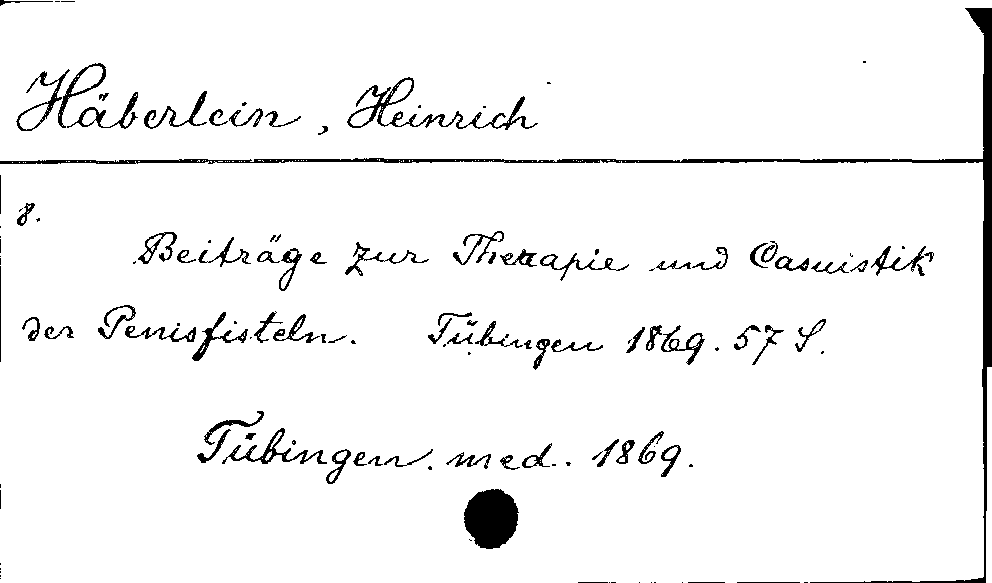 Häberlein, Heinrich
8.
Beiträge zur Therapie und Casuistik
der Penisfisteln. Tübingen 1869. 57 S.
Tübingen. med. 1869.